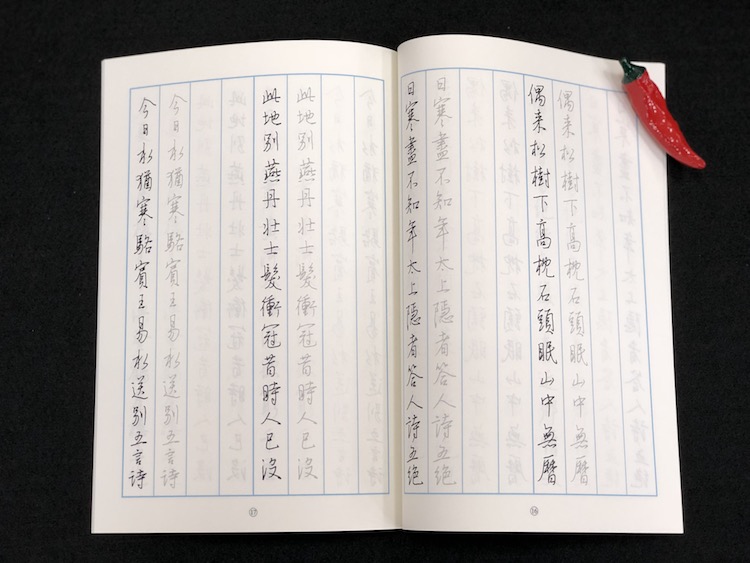 偶来松樹下高枕石頭眠山中無曆
偶来松樹下高枕石頭眠山中無曆
日寒盡不知年太上隱者答人詩五绝
日寒盡不知年太上隱者答人詩五绝
16
此地别燕丹壮士髮衝冠昔時人已没
此地别燕丹壮士髮衝冠昔時人已没
今日水猶寒駱賓王易水送别五言诗
今日水猶寒駱賓王易水送别五言诗
17